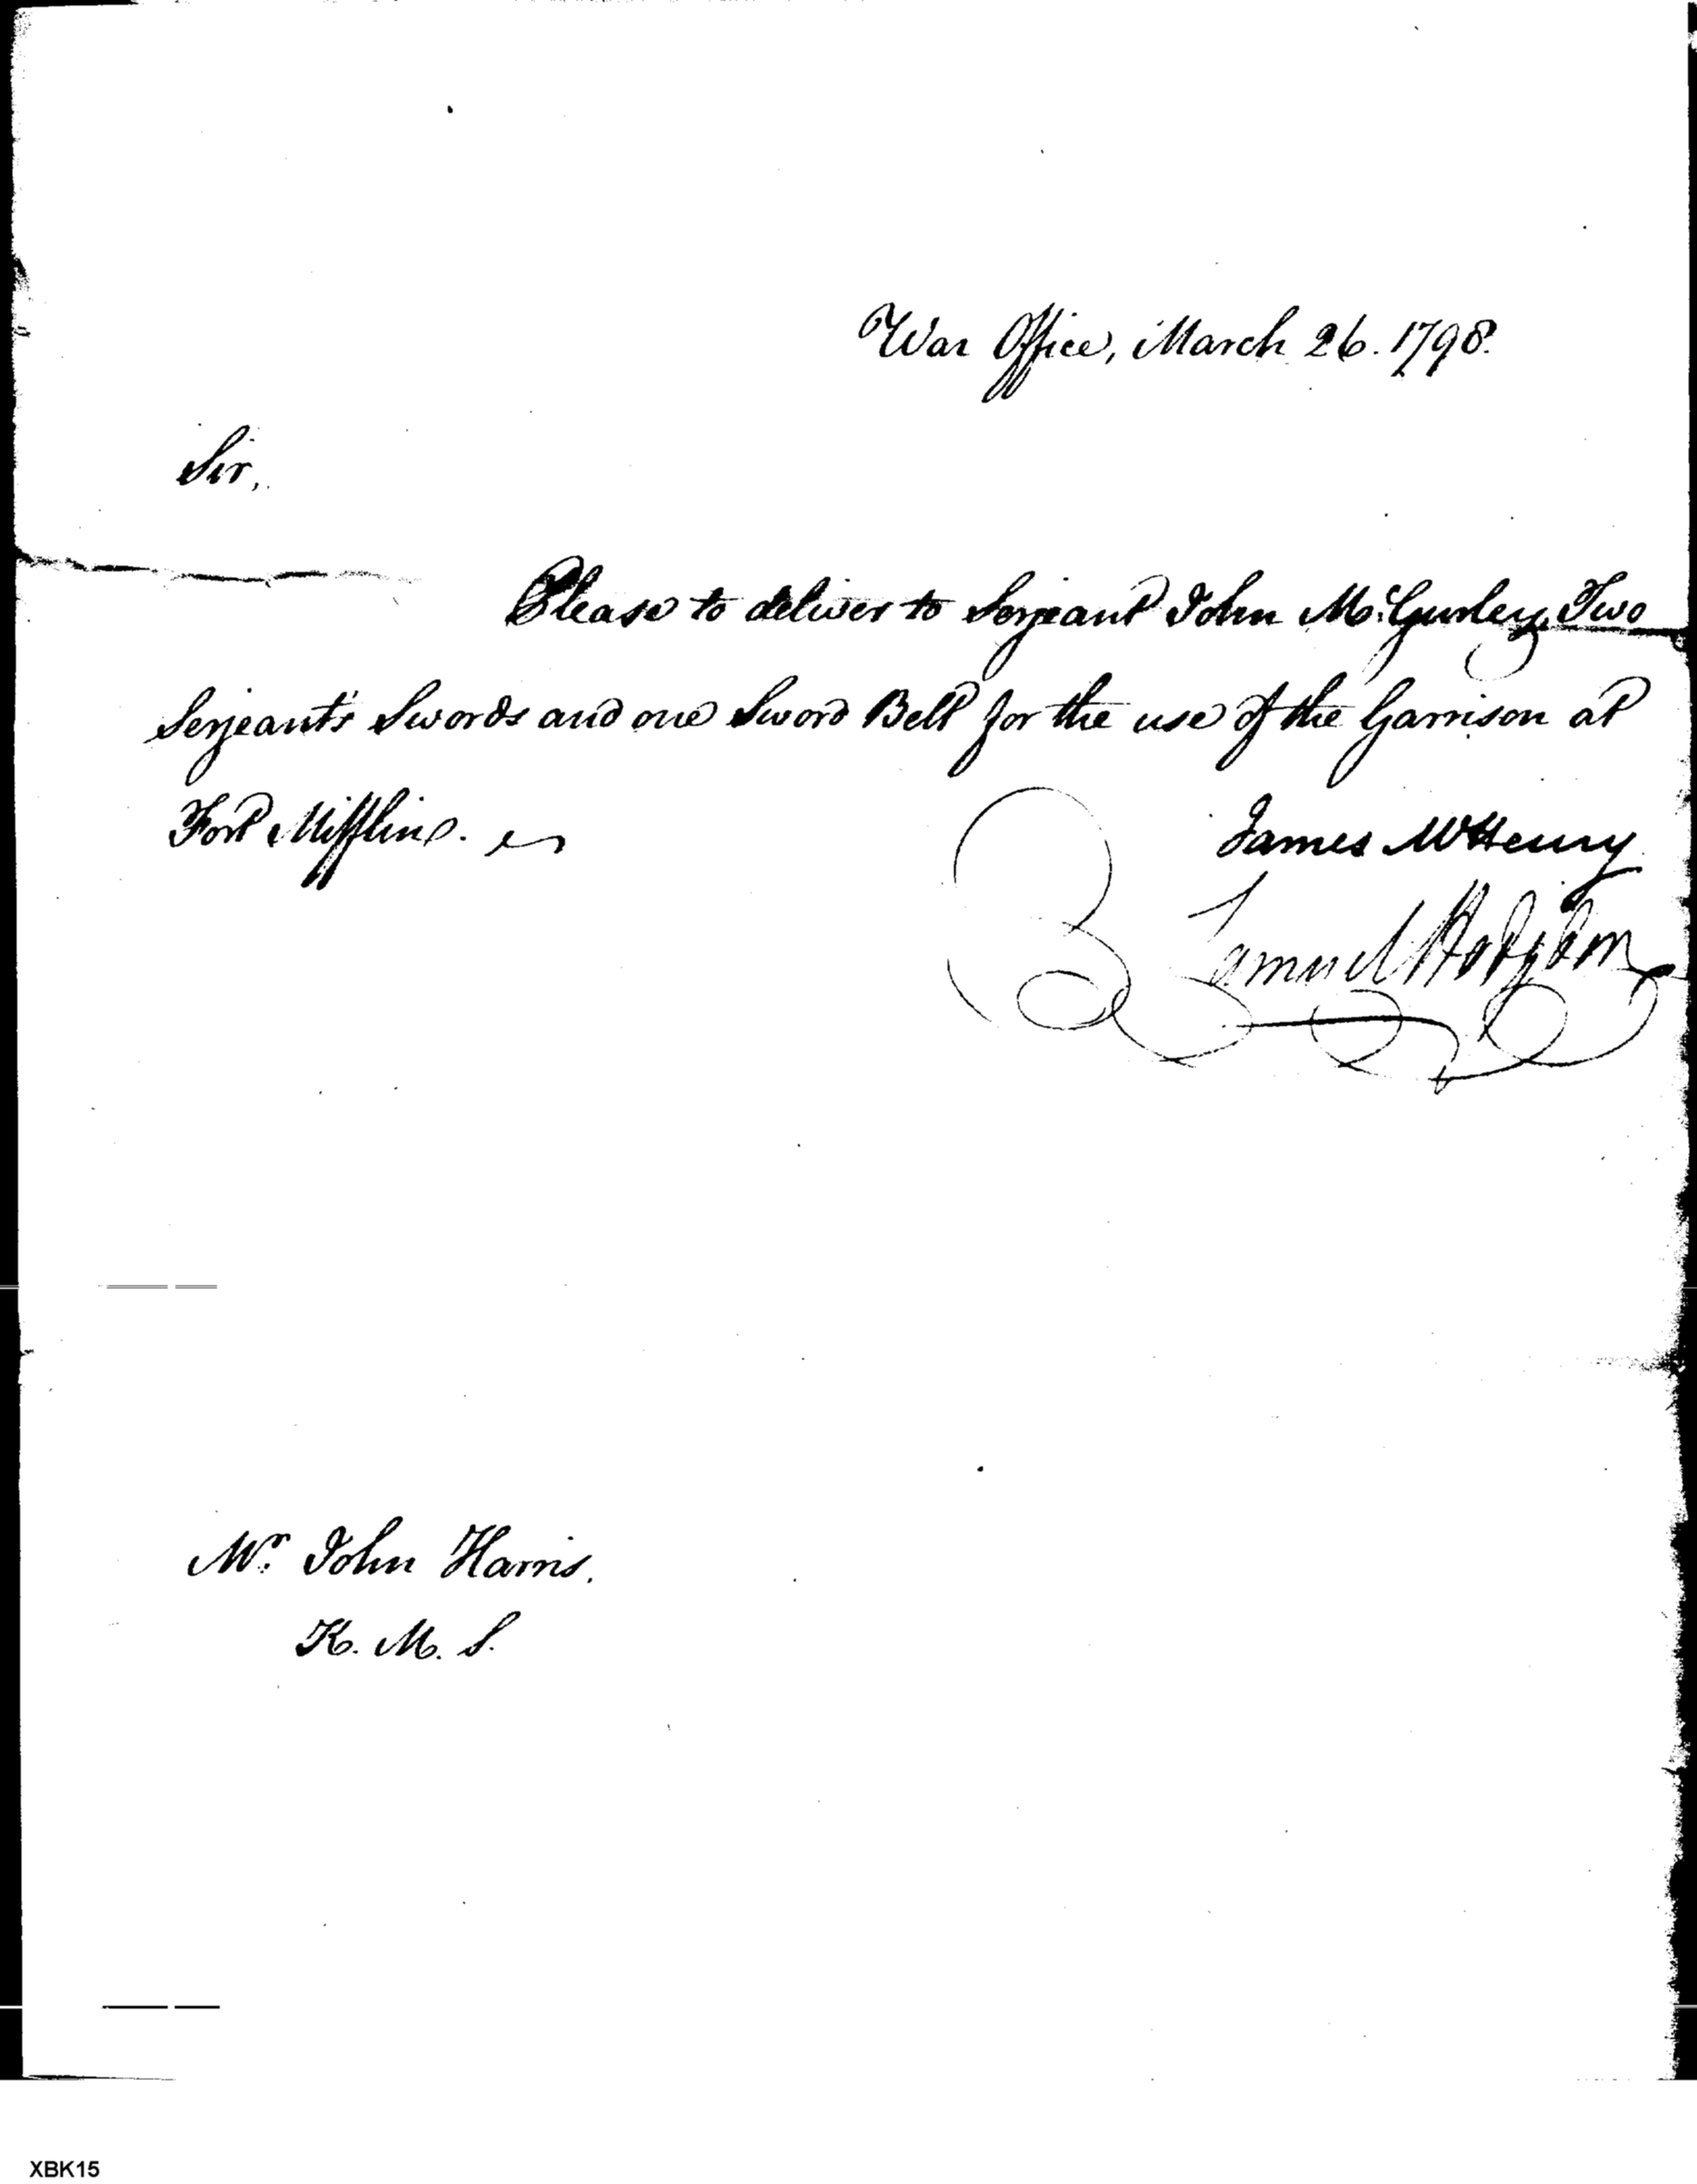 War Office, March 26. 1798.
Sir,
Please to deliver to Serjeant John McGurley, Two
Serjeant's Swords and one Sword Belt for the use of the Garrison at
Fort Mifflin.
James McHenry
Samuel Hodgdon
Mr. John Harris.
K. M. S.
XBK15